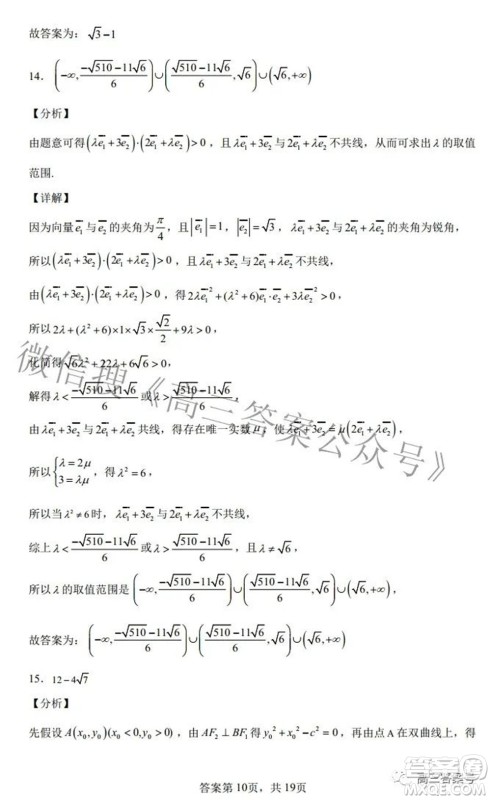 故答案为：√3−1
14．(−∞, (−√510−11√6)/6)∪((√510−11√6)/6, √6)∪(√6, +∞)
【分析】
由题意可得(λe₁+3e₂)·(2e₁+λe₂)>0，且λe₁+3e₂与2e₁+λe₂不共线，从而可求出λ的取值
范围.
【详解】
因为向量e₁与e₂的夹角为π/4，且|e₁|=1，|e₂|=√3，λe₁+3e₂与2e₁+λe₂的夹角为锐角，
所以(λe₁+3e₂)·(2e₁+λe₂)>0，且λe₁+3e₂与2e₁+λe₂不共线，
由(λe₁+3e₂)·(2e₁+λe₂)>0，得2λe₁²+(λ²+6)e₁·e₂+3λe₂²>0，
所以2λ+(λ²+6)×1×√3×√2/2+9λ>0，
化简得√6λ²+22λ+6√6>0，
解得λ<(−√510−11√6)/6或λ>(√510−11√6)/6，
由λe₁+3e₂与2e₁+λe₂共线，得存在唯一实数μ，使λe₁+3e₂=μ(2e₁+λe₂)，
所以{λ=2μ
3=λμ，得λ²=6，
所以当λ²≠6时，λe₁+3e₂与2e₁+λe₂不共线，
综上λ<(−√510−11√6)/6或λ>(√510−11√6)/6，且λ≠√6，
所以λ的取值范围是(−∞, (−√510−11√6)/6)∪((√510−11√6)/6, √6)∪(√6, +∞)，
故答案为：(−∞, (−√510−11√6)/6)∪((√510−11√6)/6, √6)∪(√6, +∞)
15．12−4√7
【分析】
先假设A(x₀,y₀)(x₀<0,y₀>0)，由AF₂⊥BF₁得y₀²+x₀²−c²=0，再由点A在双曲线上，得
答案第10页，共19页
微信搜《高三答案公众号》
高三答案号